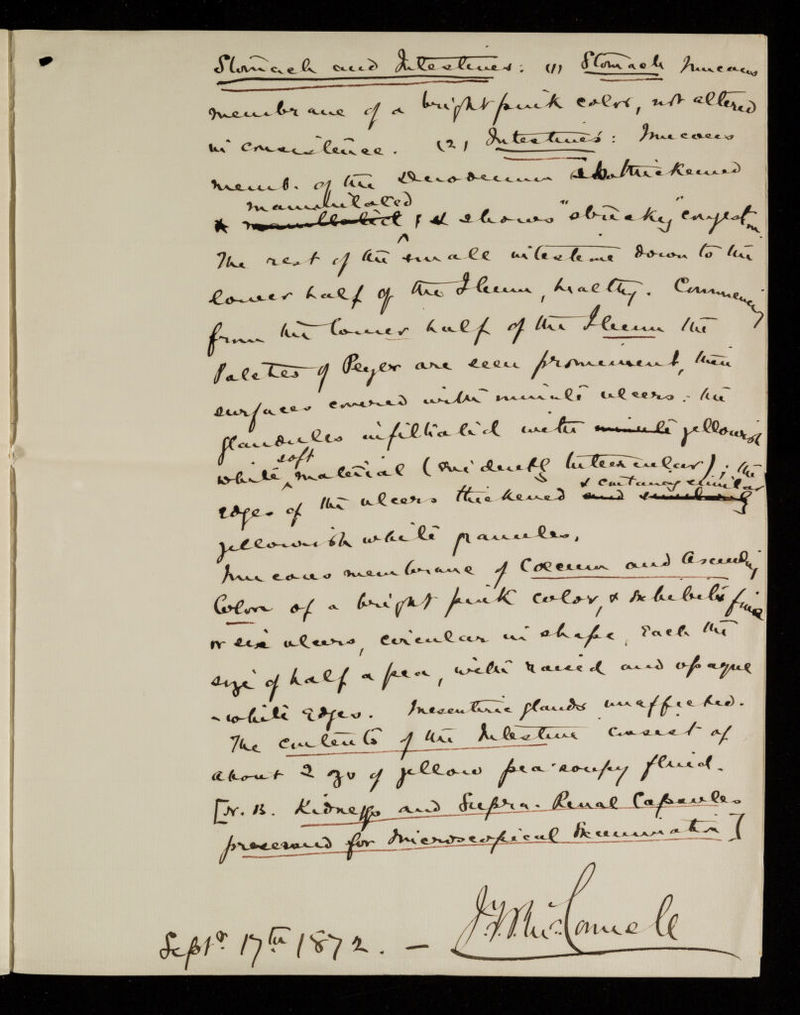 Stomach and Intestines: (1) Stomach Mucous
membrane of a bright pink color, not altered
in consistence. (2) Intestines: Mucous
memb. of the Duodenum thickened
mammilated
& & shows "streaky" congestn.
The rest of the small intestine down to the
lower half of the Ileum, healthy. Commencing
from the lower half of the Ileum the
Patches of Peyer are seen prominent, their
surfaces covered with minute ulcers:- the
glandules infiltrated with minute yellowish
soft
white material (evidently tubercular); the
& containing similar
edges of the ulcers thickened and
yellowish white granules.
Mucous membrane of Coecum and Ascending
Colon of a bright pink color, & exhibits five
or six ulcers, circular in shape, each the
size of half a pea, with raised and opaque
-white edges. Mesenteric glands unaffected.
The contents of the Intestine consist of
about 2 ozs of yellow pea-soupy fluid.
[N.B. Kidneys and Supra-Renal Capsules
preserved for Microscopical Examination]
J.F.P. McConnell
Septr. 17th 1872. -